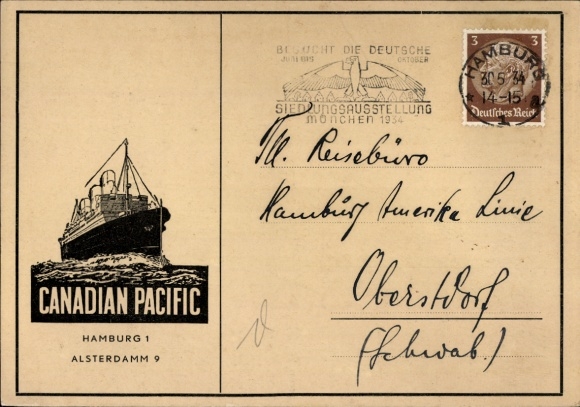 BESUCHT DIE DEUTSCHE
JUNI BIS OKTOBER
SIEDLUNGSAUSSTELLUNG
MÜNCHEN 1934
3 3
HAMBURG
30.5.34
14-15
1
Deutsches Reich
Reisebüro
Hamburg Amerika Linie
Oberstdorf
(Schwab.)
CANADIAN PACIFIC
HAMBURG 1
ALSTERDAMM 9